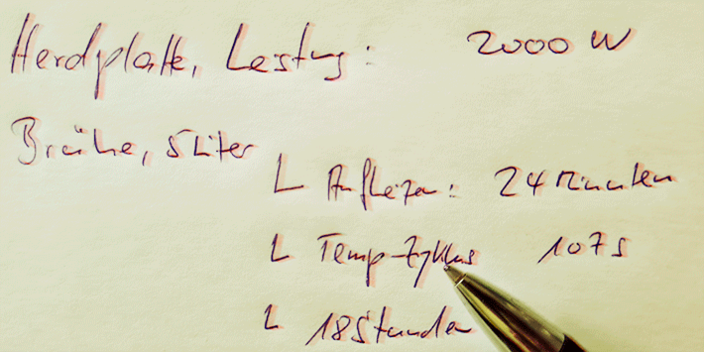 Herdplatte, Leistung: 2000 W
Brühe, 5 Liter
L Aufheizen: 24 Minuten
L Temp-Zyklus 107 s
L 18 Stunden